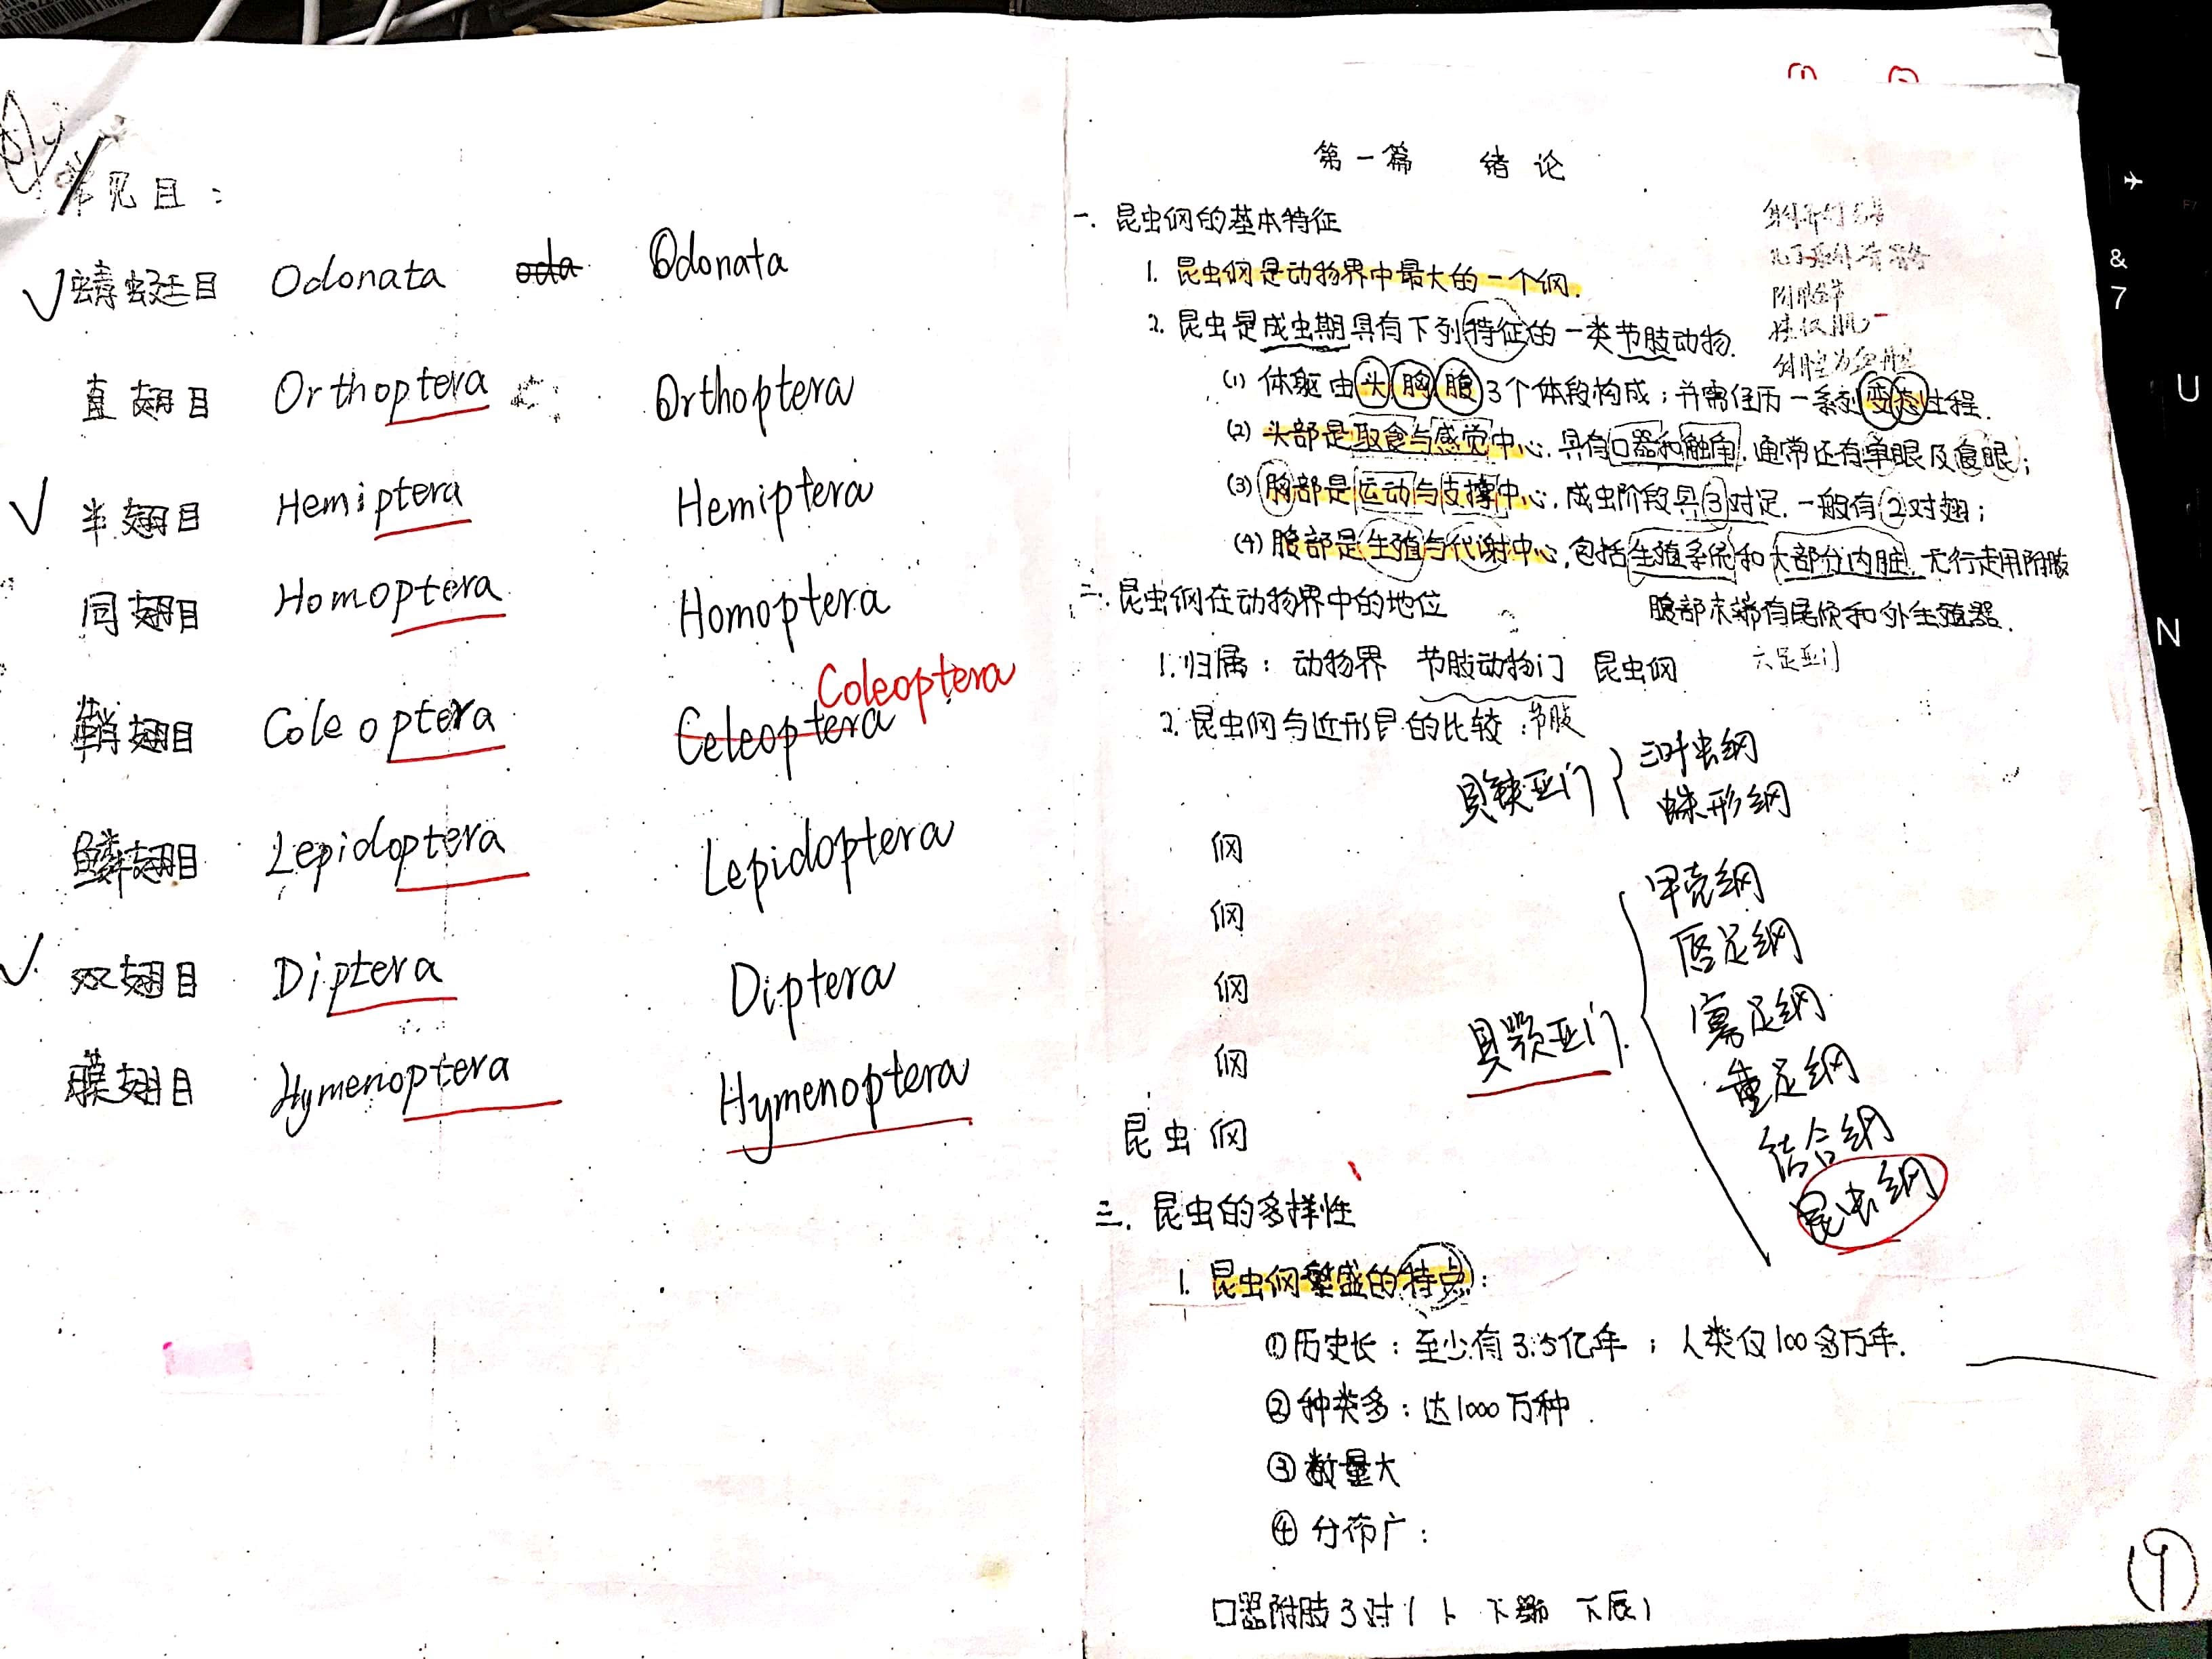 常见目：
蜻蜓目 Odonata oda Odonata
直翅目 Orthoptera Orthoptera
半翅目 Hemiptera Hemiptera
同翅目 Homoptera Homoptera
Coleoptera
鞘翅目 Coleoptera Celeoptera
鳞翅目 Lepidoptera Lepidoptera
双翅目 Diptera Diptera
膜翅目 Hymenoptera Hymenoptera
第一篇 绪论
一. 昆虫纲的基本特征
1. 昆虫纲是动物界中最大的一个纲.
2. 昆虫是成虫期具有下列特征的一类节肢动物.
(1) 体躯由头胸腹3个体段构成；并需经历一系列变态过程.
(2) 头部是取食与感觉中心,具有口器和触角,通常还有单眼及复眼；
(3) 胸部是运动与支撑中心,成虫阶段具3对足,一般有2对翅；
(4) 腹部是生殖与代谢中心,包括生殖系统和大部分内脏,无行走用附肢
腹部末端有尾须和外生殖器.
二. 昆虫纲在动物界中的地位
1. 归属：动物界 节肢动物门 昆虫纲
六足亚门
2. 昆虫纲与近形 的比较：节肢
具螯亚门 三叶虫纲
蛛形纲
纲
纲
纲
纲
昆虫纲
具颚亚门. 甲壳纲
唇足纲
寡足纲
重足纲
结合纲
昆虫纲
三. 昆虫的多样性
1. 昆虫纲繁盛的特点：
①历史长：至少有3.5亿年；人类仅100多万年.
②种类多：达1000万种.
③数量大
④分布广：
口器附肢3对(
①
& 7
U
N